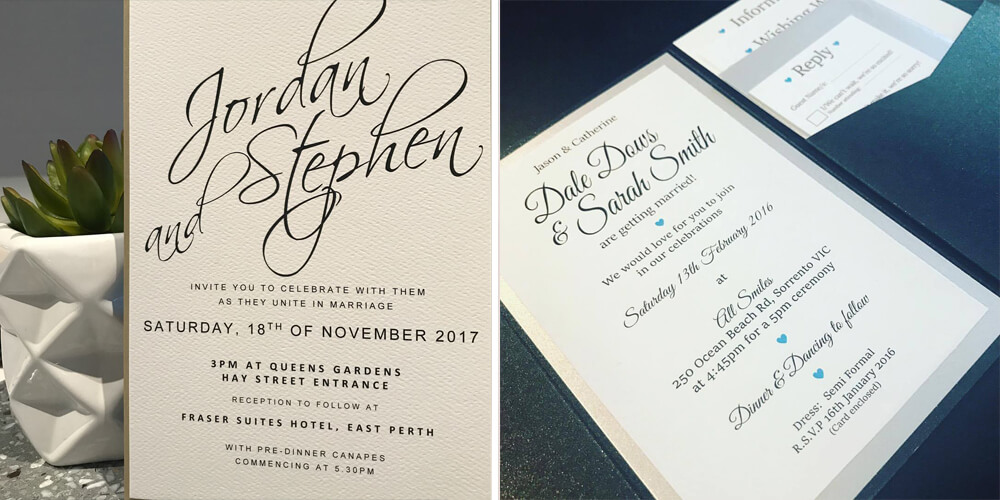 Jordan
and Stephen
INVITE YOU TO CELEBRATE WITH THEM
AS THEY UNITE IN MARRIAGE
SATURDAY, 18TH OF NOVEMBER 2017
3PM AT QUEENS GARDENS
HAY STREET ENTRANCE
RECEPTION TO FOLLOW AT
FRASER SUITES HOTEL, EAST PERTH
WITH PRE-DINNER CANAPES
COMMENCING AT 5.30PM
Jason & Catherine
Dale Dows
& Sarah Smith
are getting married!
We would love for you to join
in our celebrations
Saturday 13th February 2016
at
All Smiles
250 Ocean Beach Rd, Sorrento VIC
at 4:45pm for a 5pm ceremony
Dinner & Dancing to follow
Dress: Semi Formal
R.S.V.P 16th January 2016
(Card enclosed)
Inform
Wishing W
Reply
Guest Name/s
I/We can't wait, we're so excited!
Number attending:
it, we're so sorry!